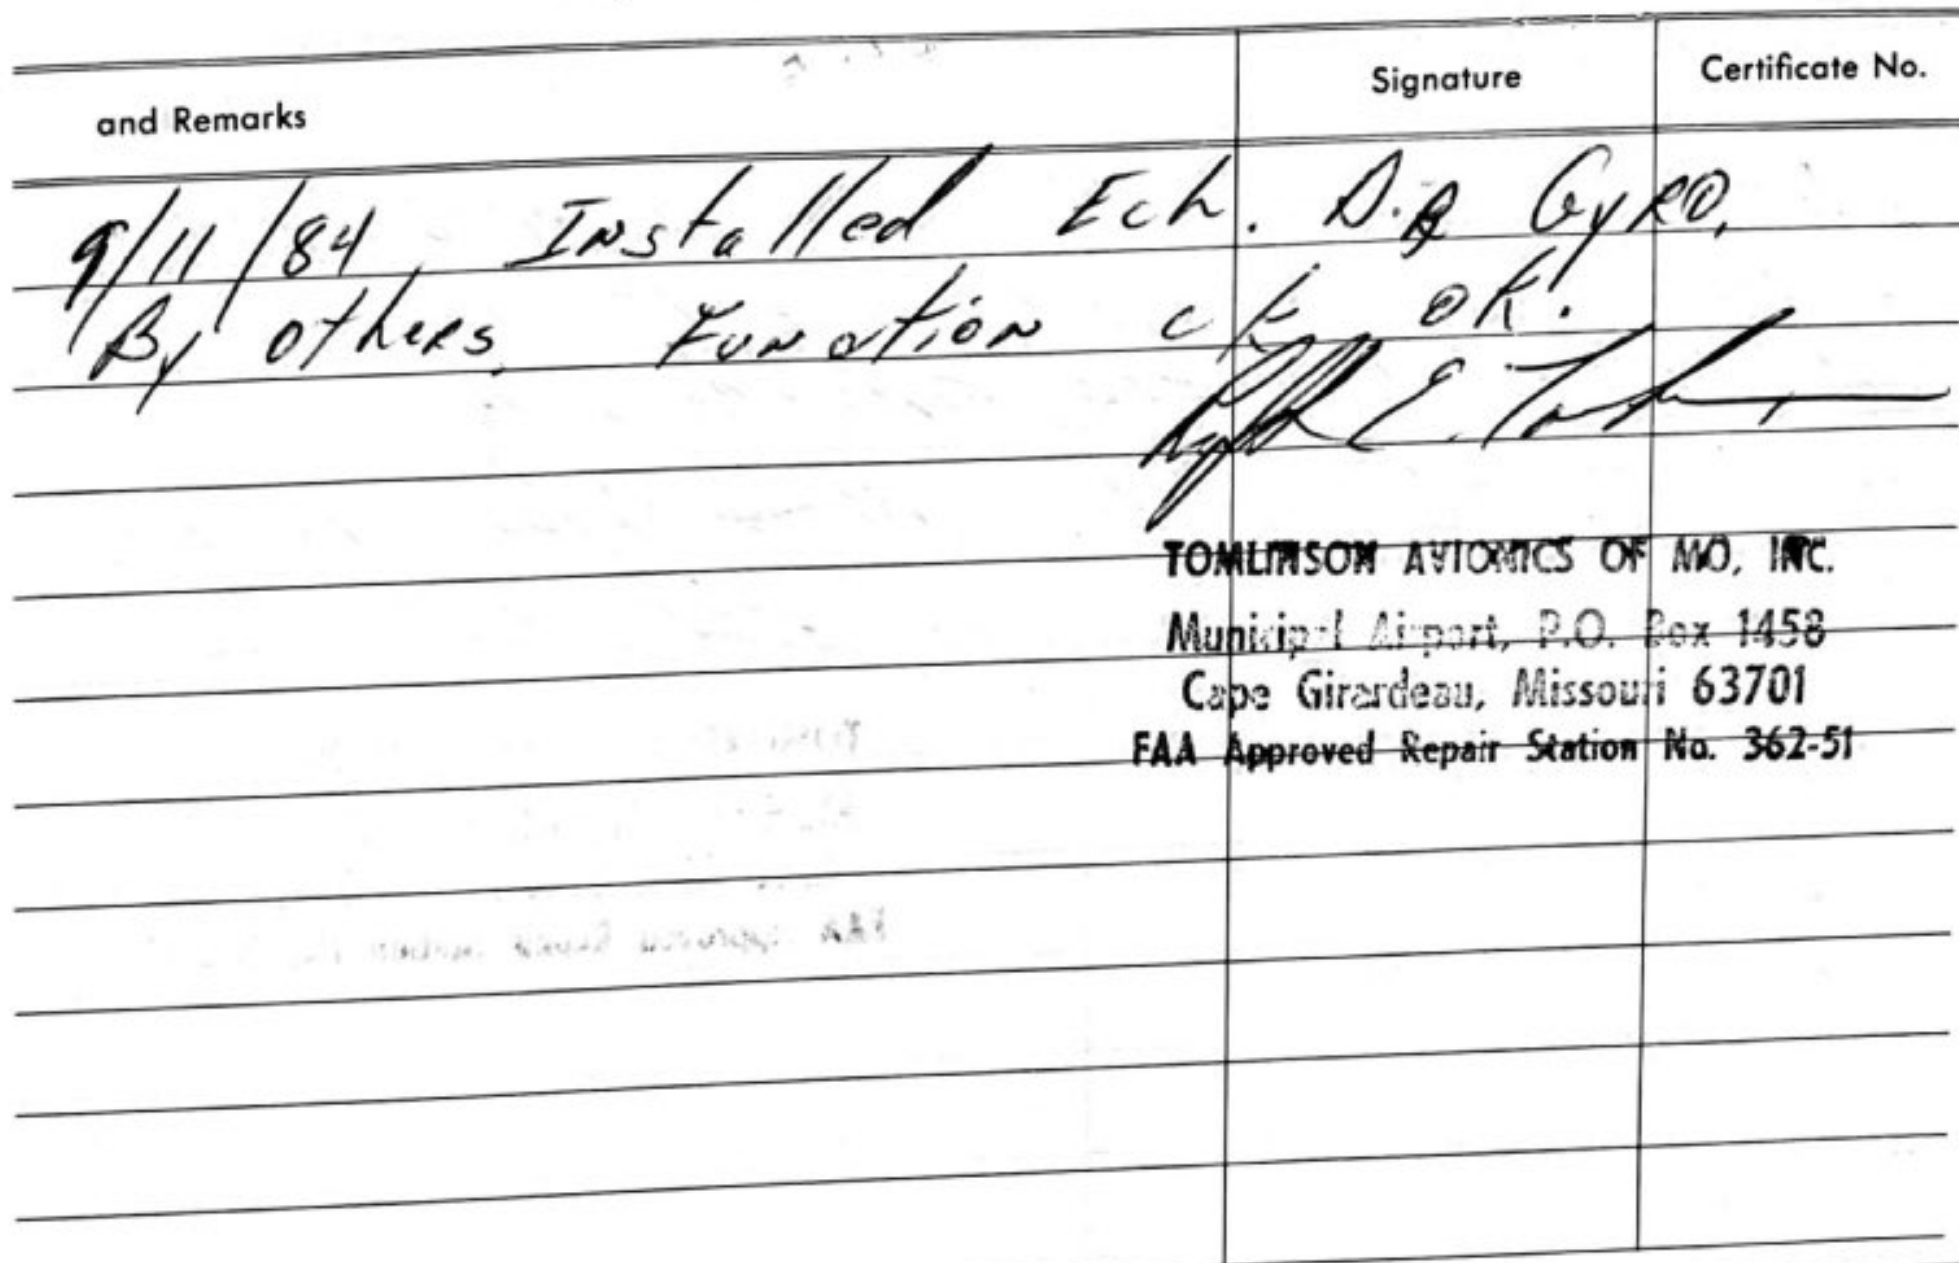 and Remarks
Signature
Certificate No.
9/11/84 Installed Ech. D.G Gyro,
By others. Function ck ok.
E.
TOMLINSON AVIONICS OF MO, INC.
Municipal Airport, P.O. Box 1458
Cape Girardeau, Missouri 63701
FAA Approved Repair Station No. 362-51